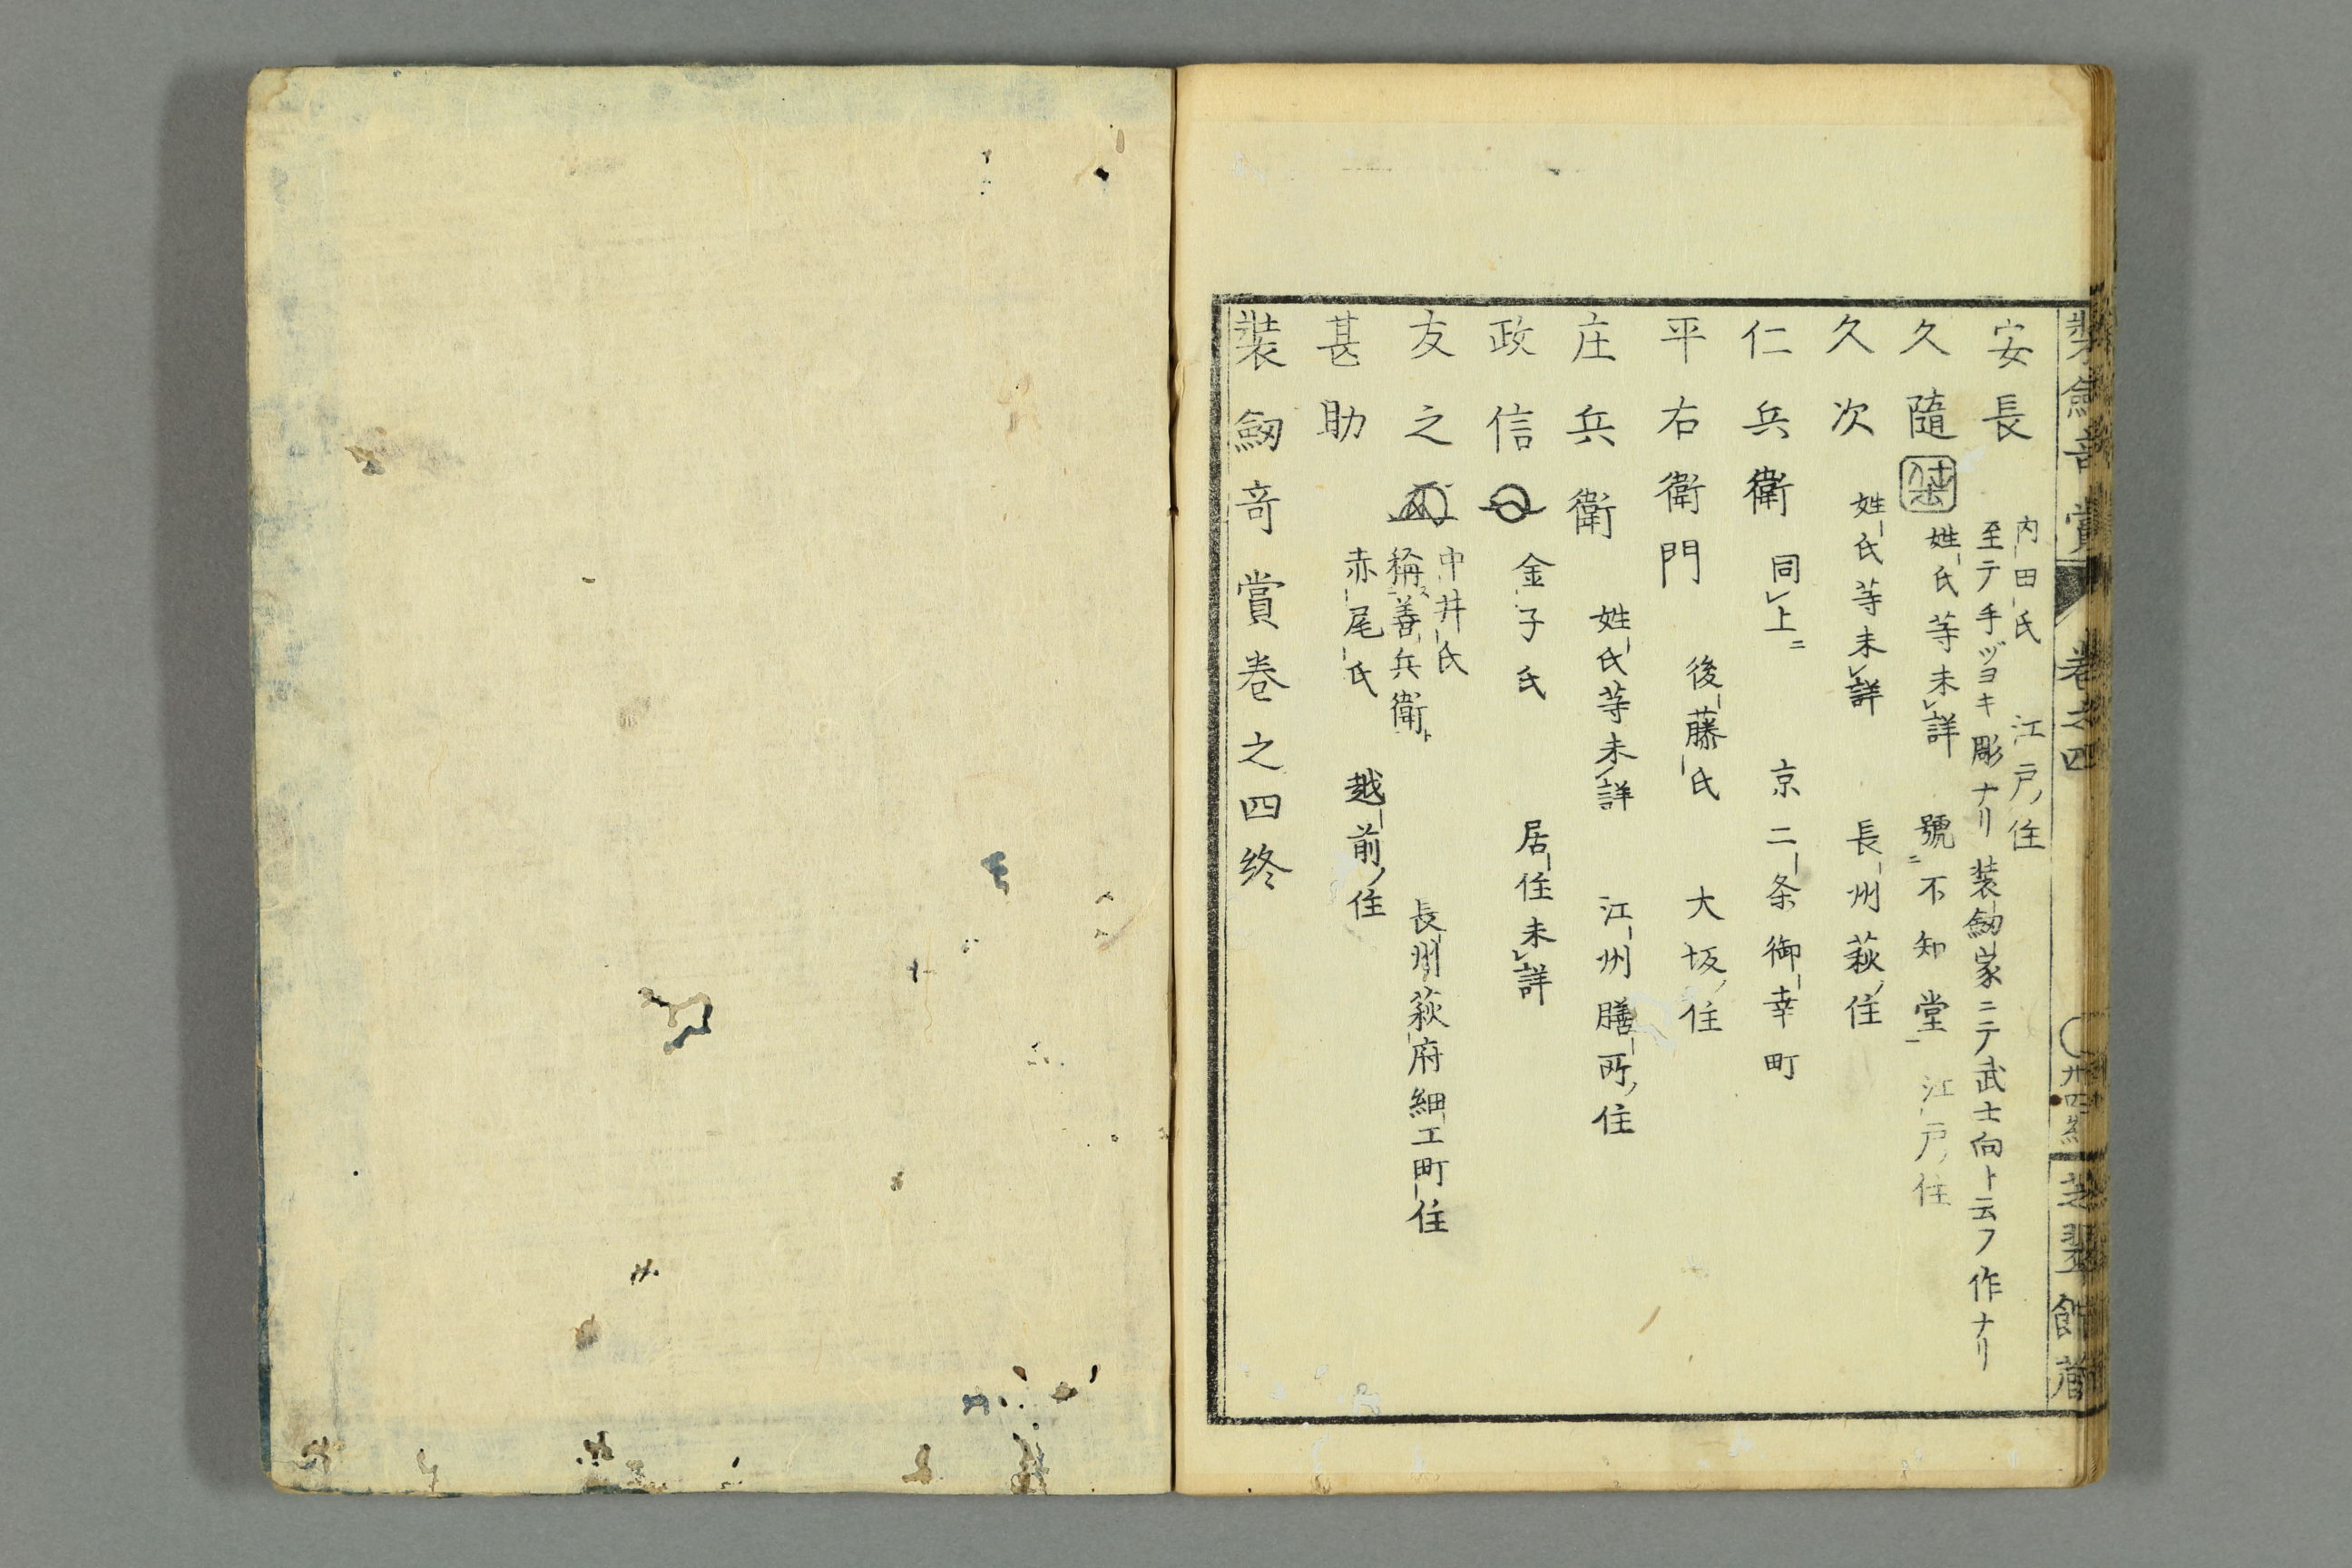 装劔奇賞 巻之四 〇卅四終 芝翠館蔵
安長 内田氏 江戸ノ住
至テ手ヅヨキ彫ナリ 装劔家ニテ武士向ト云フ作ナリ
久隨 姓氏等未レ詳 號ニ不知堂一 江戸ノ住
久次 姓氏等未レ詳 長州萩ノ住
仁兵衛 同レ上ニ 京二条御幸町
平右衛門 後藤氏 大坂ノ住
庄兵衛 姓氏等未レ詳 江州膳所ノ住
政信 金子氏 居住未レ詳
友之 中井氏
稱ス二善兵衛ト一 長州萩府細工町住
甚助 赤尾氏 越前ノ住
装劔奇賞巻之四終